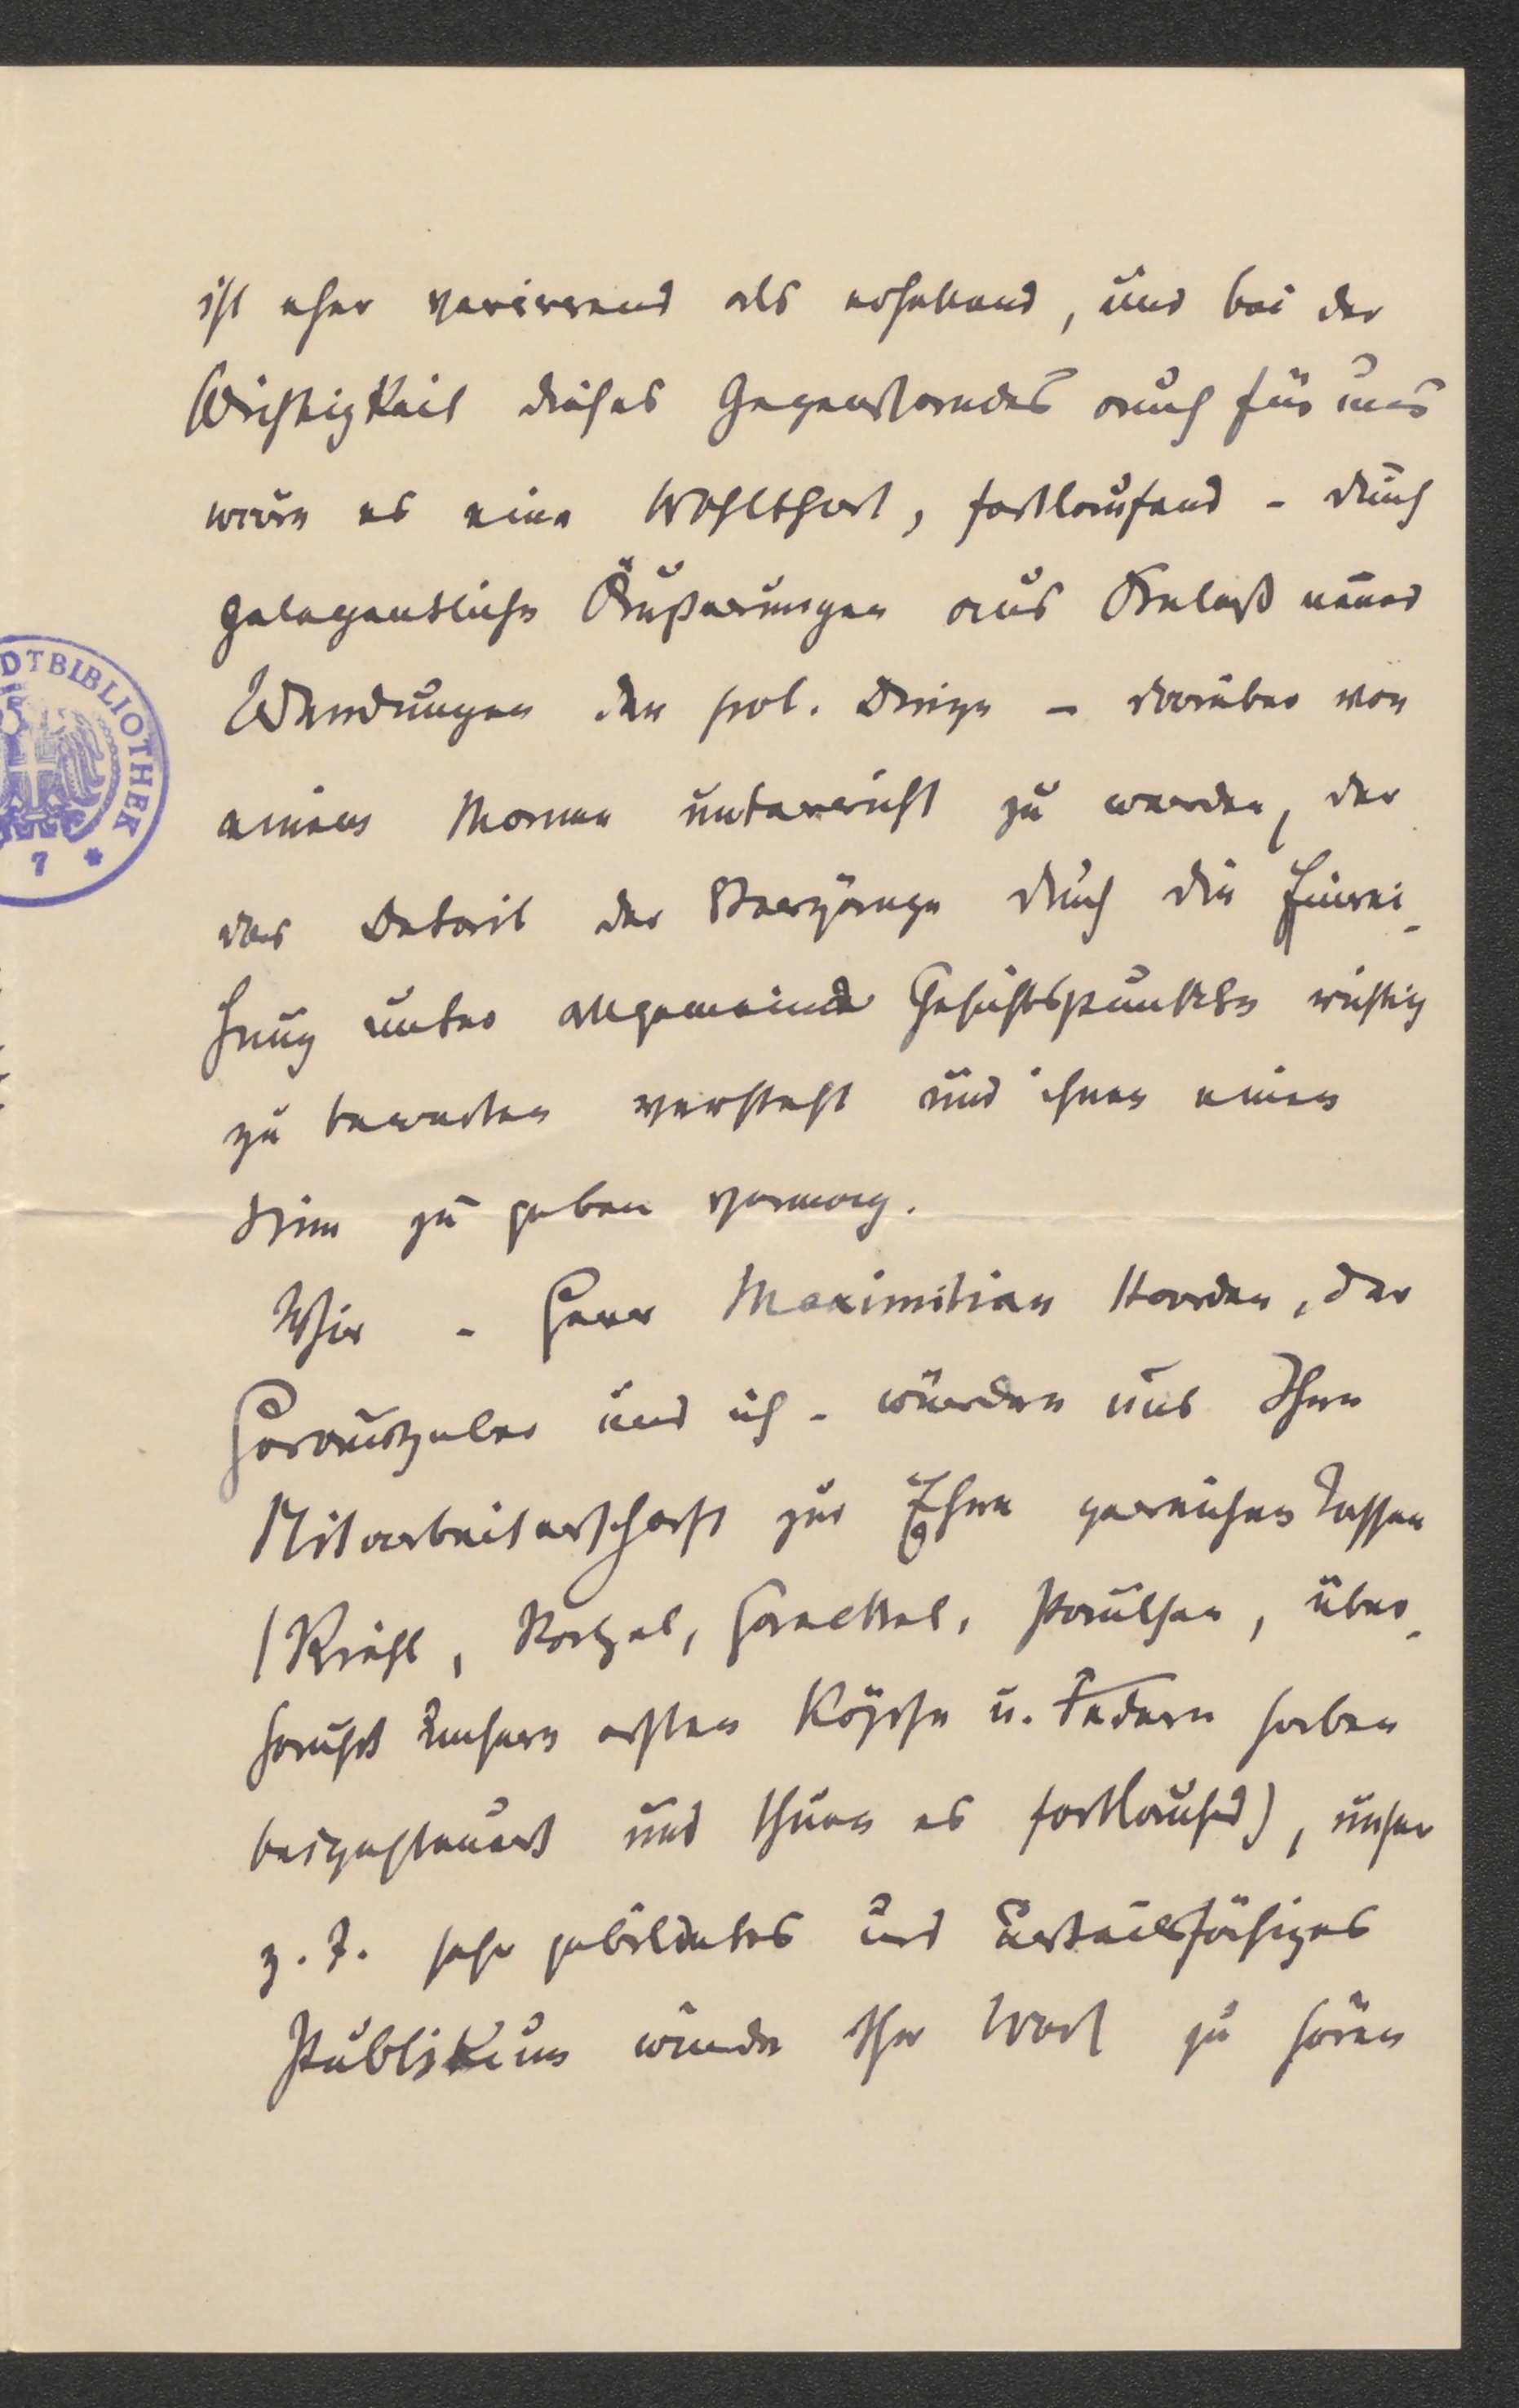 ist eher verirrend als erhellend, und bei der
Wichtigkeit dieses Gegenstandes auch für uns
wäre es eine Wohlthat, fortlaufend - durch
gelegentliche Äußerungen aus Anlaß neuer
Wendungen der pol. Dinge - darüber von
einem Manne unterricht zu werden, der
das Detail der Vorgänge durch die Einrei-
hung unter allgemeine Gesichtspunkte richtig
zu bewerten versteht und ihnen einen
Sinn zu geben vermag.
Wir - Herr Maximilian Harden, der
Herausgeber und ich - würden uns Ihre
Mitarbeiterschaft zur Ehre gereichen lassen
(Riehl, Ratzel, Haeckel, Paulsen, über-
haupt unsere ersten Köpfe u. Federn haben
beigesteuert und thuen es fortlaufd), unser
z. T. sehr gebildetes und urteilsfähiges
Publikum würde Ihr Wort zu hören
DTBIBLIOTHEK
7 *